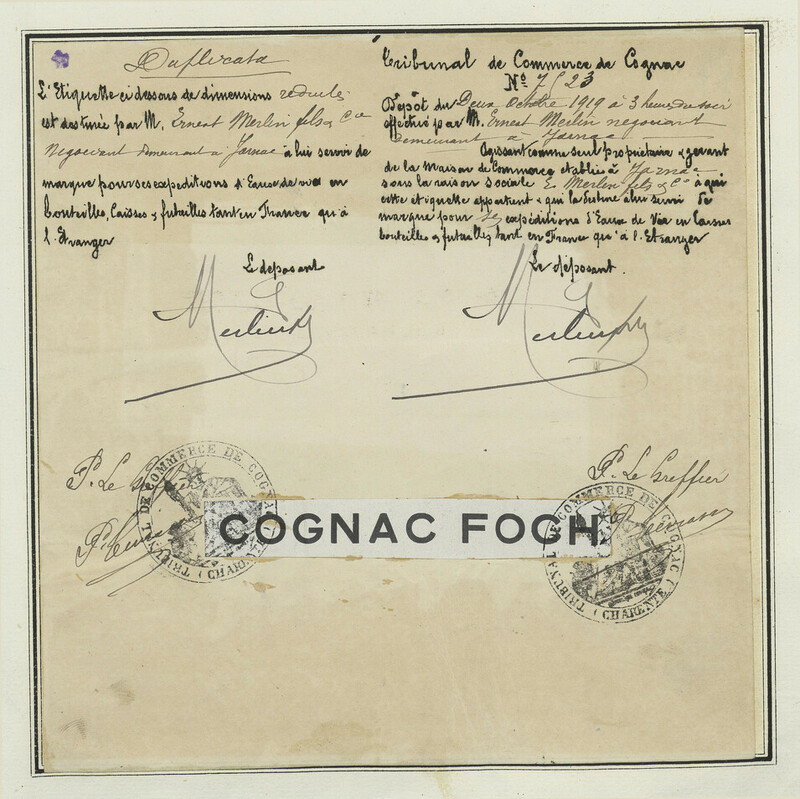 Duplicata
L'Etiquette ci dessous de dimensions reduites
est destinée par M. Ernest Merlin fils & Cie
negociant demeurant à Jarnac à lui servir de
marque pour ses expeditions d'Eaux de vie en
bouteilles, Caisses & futailles tant en France qu'à
l'Etranger
Le deposant
Merlin fils
P. Le Greffier
Tribunal de Commerce de Cognac
No 7523
Dépôt du Deux Octobre 1919 à 3 heures du soir
effectué par M. Ernest Merlin negociant
demeurant à Jarnac
Agissant comme seul propriétaire & gerant
de la Maison de Commerce établie à Jarnac
sous la raison sociale E. Merlin fils & Cie à qui
cette etiquette appartient & qui la destine à lui servir de
marque pour ses expéditions d'Eaux de Vie en Caisses
bouteilles & futailles tant en France qu'à l'Etranger
Le déposant.
Merlin fils
P. Le Greffier
COGNAC FOCH
TRIBUNAL DE COMMERCE DE COGNAC (CHARENTE)
TRIBUNAL DE COMMERCE DE COGNAC (CHARENTE)